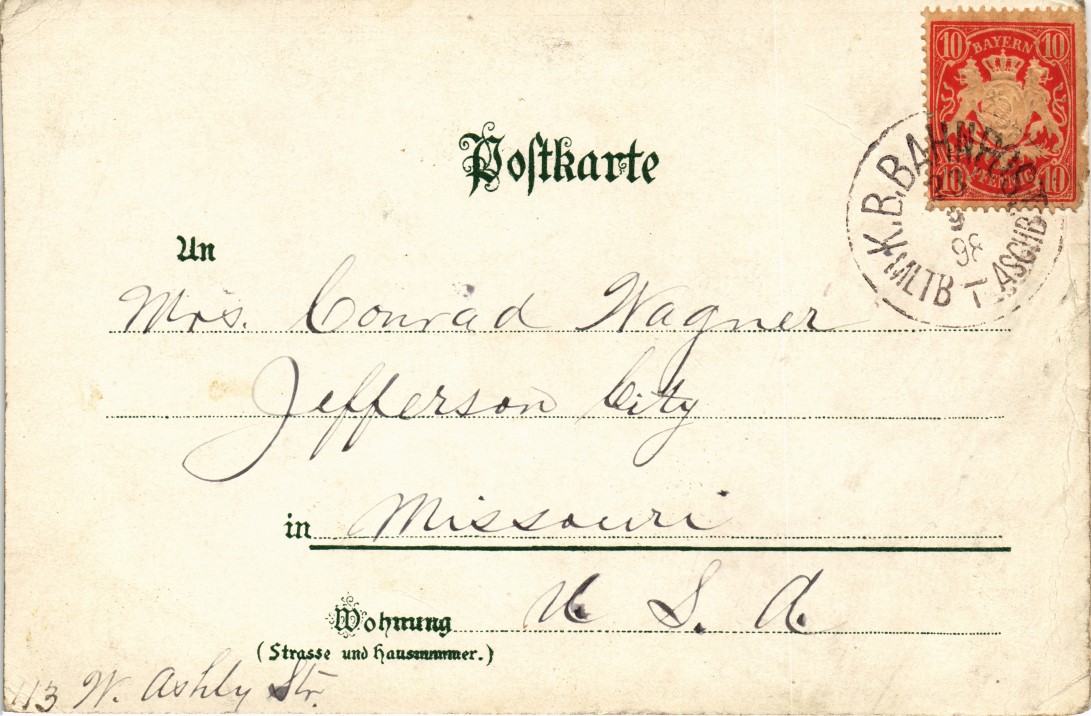 10 BAYERN 10
10 PFENNIG 10
K.B.BAHNPOST
20
9
98
MLTB - ASCHB
Postkarte
An
Mrs. Conrad Wagner
Jefferson City
in Missouri
Wohnung U. S. A.
(Strasse und Hausnummer.)
113 W. Ashly Str.